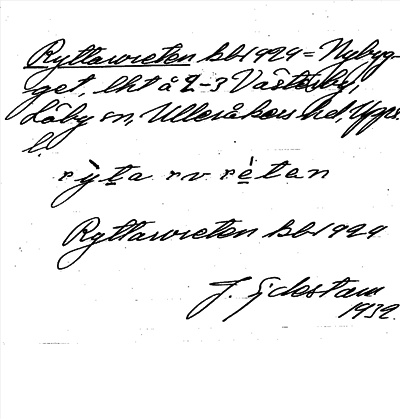 Ryttarvreten kbl 1929 = Nybyg-
get, lht å 2-3 Västerby,
Läby sn, Ulleråkers hd, Upps.
l.
rỳta rvrèten
Ryttarvreten kbl 1929
J. Sjdestam
1932.